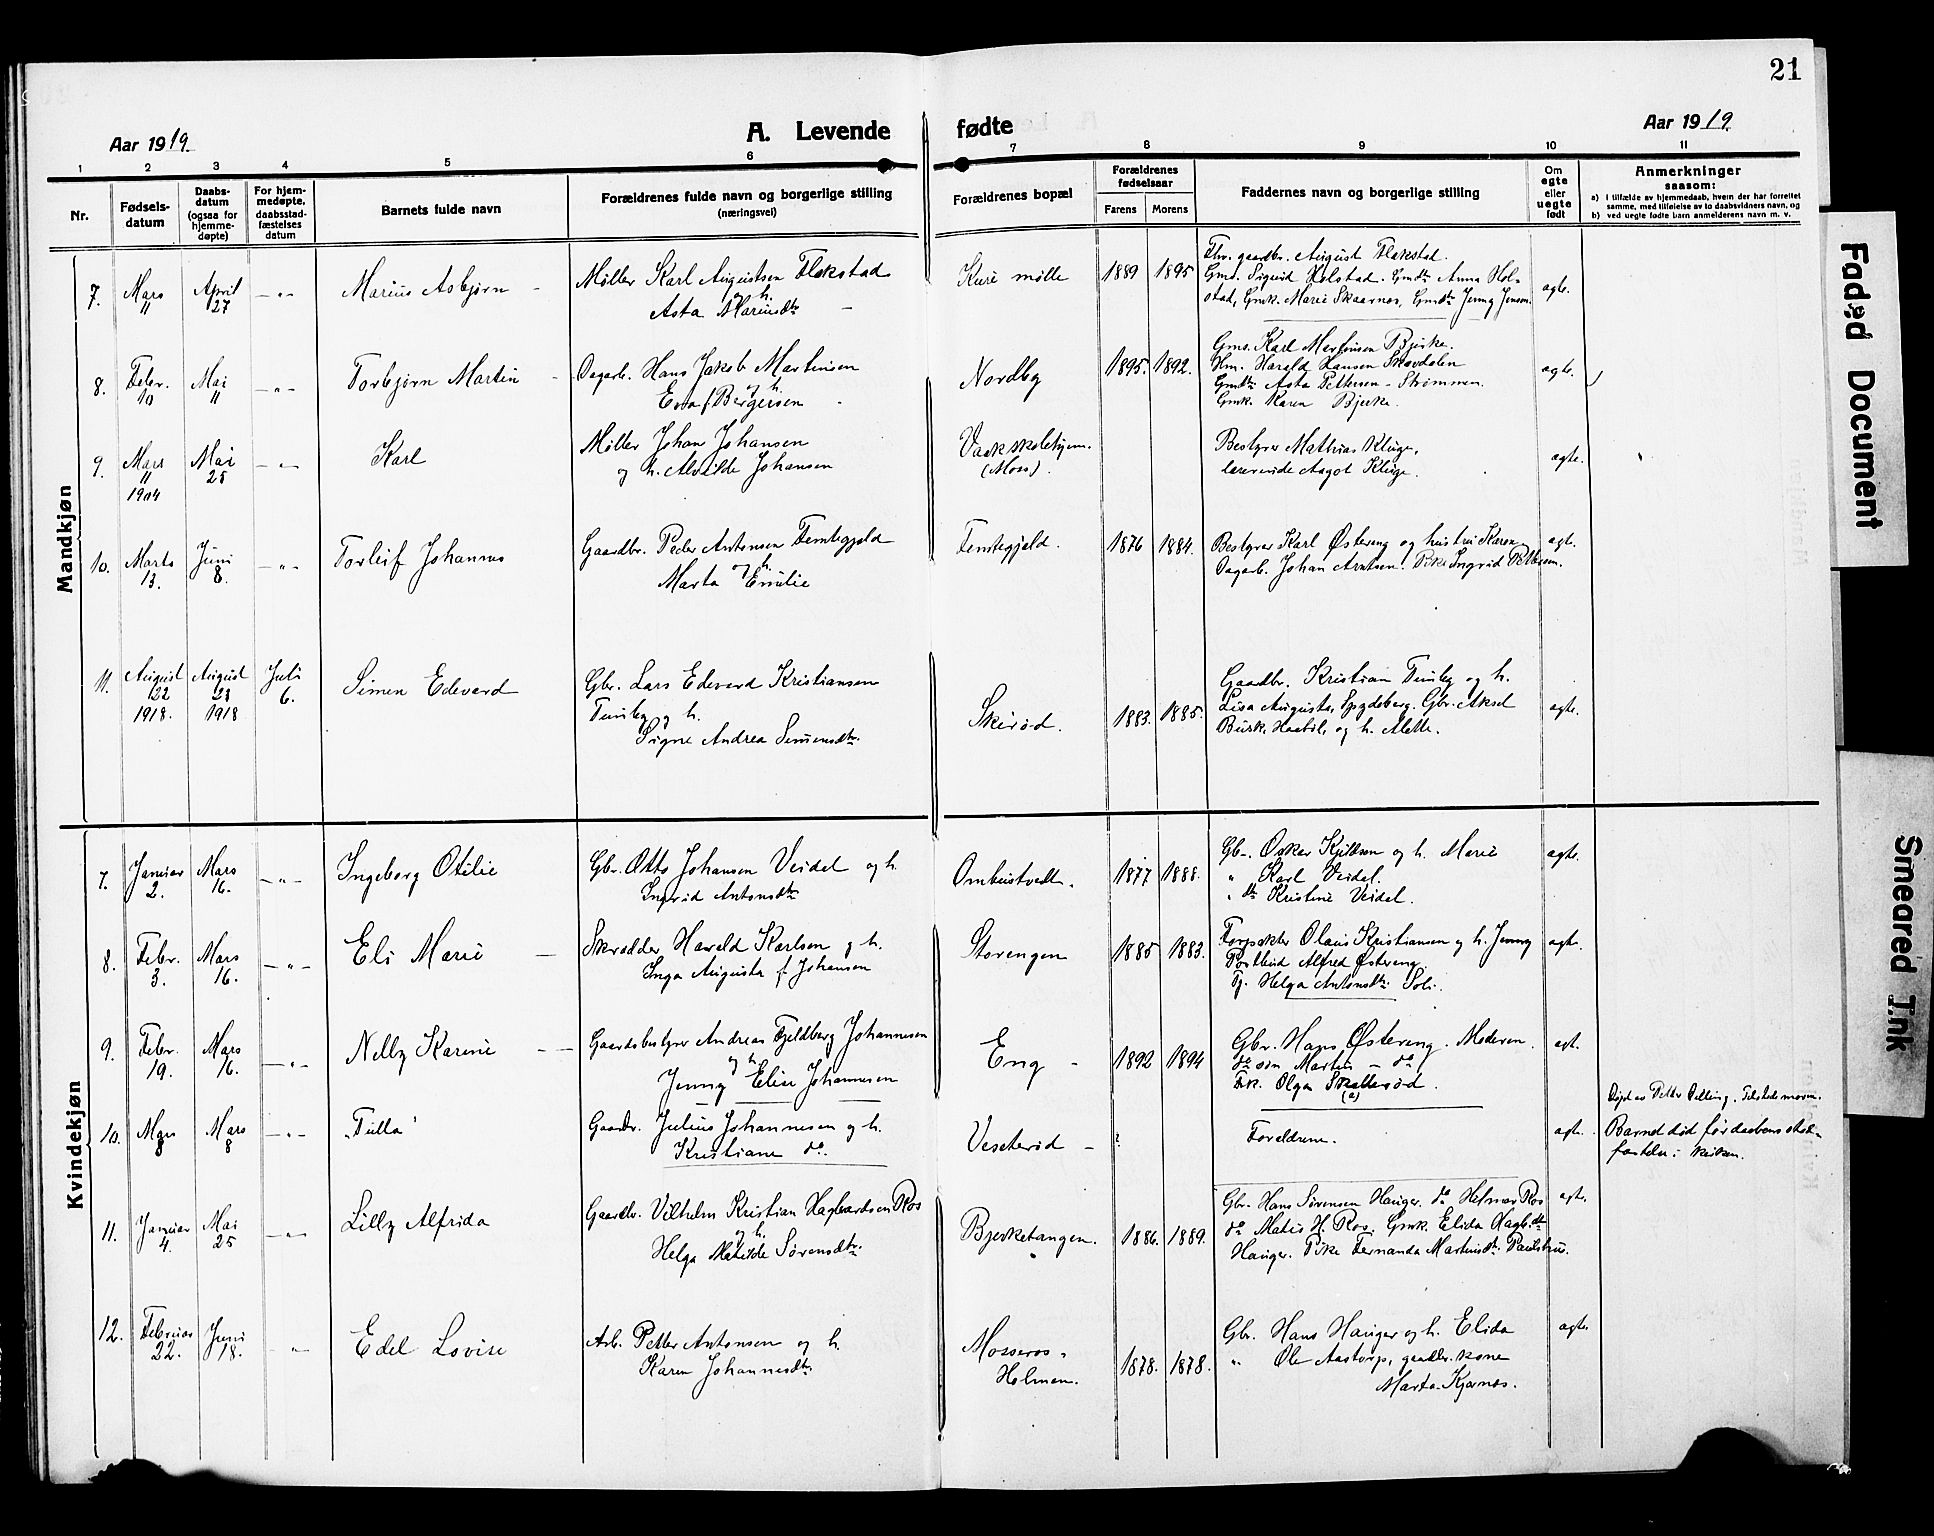 21
Aar 1919.
A. Levende fødte
Aar 1919.
1 2 3 4 5 6 7 8 9 10 11
Nr.
Fødsels-
datum
Daabs-
datum
(ogsaa for
hjemme-
døpte)
For hjem-
medøpte,
daabsstad-
fæstelses
datum
Barnets fulde navn
Forældrenes fulde navn og borgerlige stilling
(næringsvei)
Forældrenes bopæl
Forældrenes
fødselsaar
Farens Morens
Faddernes navn og borgerlige stilling
Om
egte
eller
uegte
født
Anmerkninger
saasom:
a) I tilfælde av hjemmedaab, hvem der har forrettet
samme, med tilføielse av to daabsvidners navn, og
b) ved uegte fødte barn anmelderens navn m. v.
Mandkjøn
7. Mars 11 April 27 — „ — Marius Asbjørn -
Møller Karl Augustsen Flakstad
og h.
Asta Mariusdtr
Kure mølle 1889 1895
Fhv. gaardbr. August Flakstad.
Gms. Sigurd Holstad. Gmdtr Anna Hol-
stad, Gmk. Marie Skaarnes, Gmdtr Jenny Jensen.
egte.
8. Febr. 10 Mai 11 — „ — Torbjørn Martin -
Dagarb. Hans Jakob Martinsen
og h.
Eva f. Bergersen
Nordby 1895. 1892.
Gms. Karl Martinsen Bjerke.
Hm. Harald Hansen Skovdalen
Gmdtr Asta Pettersen - Strømmen.
Gmk. Karen Bjerke.
egte.
9. Mars 11 1904 Mai 25 — „ — Karl
Møller Johan Johansen
og h. Alvilde Johansen
(Moss).
Bestyrer Mathias Kluge,
lærerinde Aagot Kluge.
egte.
10. Marts 13. Juni 8. — „ — Torleif Johannes
Gaardbr. Peder Antonsen Femtegjeld
og h.
Marta Emilie
Femtegjeld. 1876 1884.
Bestyrer Karl Østereng og hustru Karen
Dagarb. Johan Arntsen. Pike Ingrid Pettersen.
egt.
11. August 22 1918. August 23 1918 Juli 6. Simen Edvard
Gbr. Lars Edvard Kristiansen
og h.
Signe Andrea Simensdtr.
Skirød. 1883. 1885.
Gaardbr. Kristian og h.
Lisa Augusta, Spydeberg. Gbr. Aksel
Busk, Haabøl, og h. Alette.
egte.
Kvindekjøn
7. Januar 2. Mars 16. — „ — Ingeborg Otilie
Gbr. Otto Johansen Veidel og h.
Ingrid Antonsdtr
Ombustvedt. 1877 1888.
Gbr. Oskar Kjildsen og h. Marie
„ Karl Veidel.
„ dtr Kristine Veidel.
egte.
8. Febr. 3. Mars 16. — „ — Eli Marie —
Skrædder Harald Karlsen og h.
Inga Augusta f. Johansen
Storengen 1885 1883.
Forpakter Olaus Kristiansen og h. Jenny
Postbud Alfred Østereng
Tj. Helga Antonsdtr Soli.
egte.
9. Febr. 19. Mars 16. — „ — Nelly Karine — —
Gaardsbestyrer Andreas Fjeldberg Johannesen
og h.
Jenny Elise Johannesen
Eng - 1892 1894
Gbr. Hans Østereng. Moderen.
do søn Martin - do
Frk. Olga Skallerød.
(a)
egt.
10. Mars 8 Mars 8 — „ — „Tulla“
Gaardbr. Julius Johannesen og h.
Kristiane do.
Veseterød - ?
Forældrene.
egte.
Døpt av Petter Delling. Tilstede
Barnet død før daabens stad-
fæstelse i kirken.
11. Januar 4. Mai 25 — „ — Lilly Alfrida
Gaardbr. Vilhelm Kristian Hagbartsen Ros
og h.
Helga Matilde Sørensdtr.
Bjerketangen. 1886. 1889.
Gbr. Hans Sørensen Hauger. do Helmer Ros
do Matis H. Ros. Gmk. Elida Hagb.dtr
Hauger. Pike Fernanda Martinsdtr. Paulshus.
egt.
12. Februar 22. Juni 18. — „ — Edel Lovise
Arb. Petter Antonsen og h.
Karen Johannesdtr
Mosseros,
Holmen. 1878. 1878.
Gbr. Hans Hauger og h. Elida
„ Ole Aastorp, gaardbr.kone
Marta Kjærnes.
egte.
Faded Document
Smeared Ink